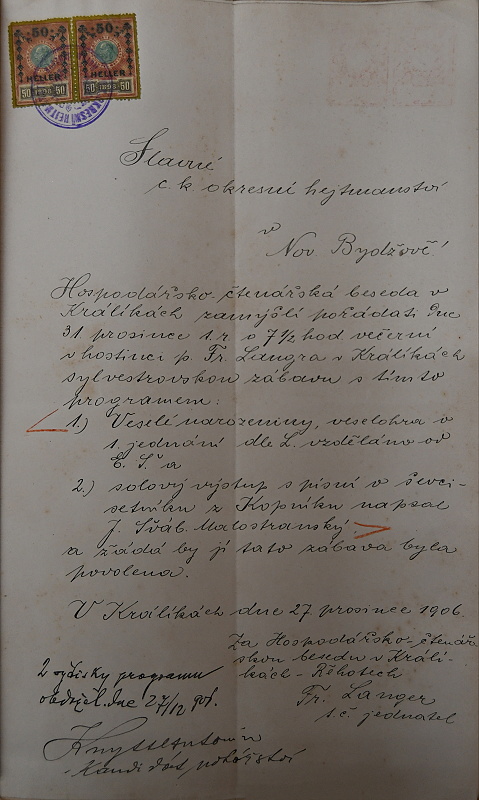 50 50
HELLER HELLER
50 1898 50 50 1898 50
Slavné
c. k. okresní hejtmanství
v
Nov. Bydžově!
Hospodářsko-čtenářská beseda v
Králíkách zamýšlí pořádati dne
31. prosince t. r. o 7 1/2 hod. večerní
v hostinci p. Fr. Langra v Králíkách
sylvestrovskou zábavu s tímto
programem:
1.) Veselé narozeniny, veselohra o
1 jednání dle L. vzděláno od
E. Š. a
2.) solový výstup s písní o ševci-
setníku z Kopníku napsal
J. Šváb. Malostranský
a žádá by jí tato zábava byla
povolena.
V Králíkách dne 27. prosince 1906.
Za Hospodářsko-čtenář-
skou besedu v Králí-
kách-Řehotech
Fr. Langer
t. č. jednatel
2 výtisky programu
obdržel dne 27/12 906.